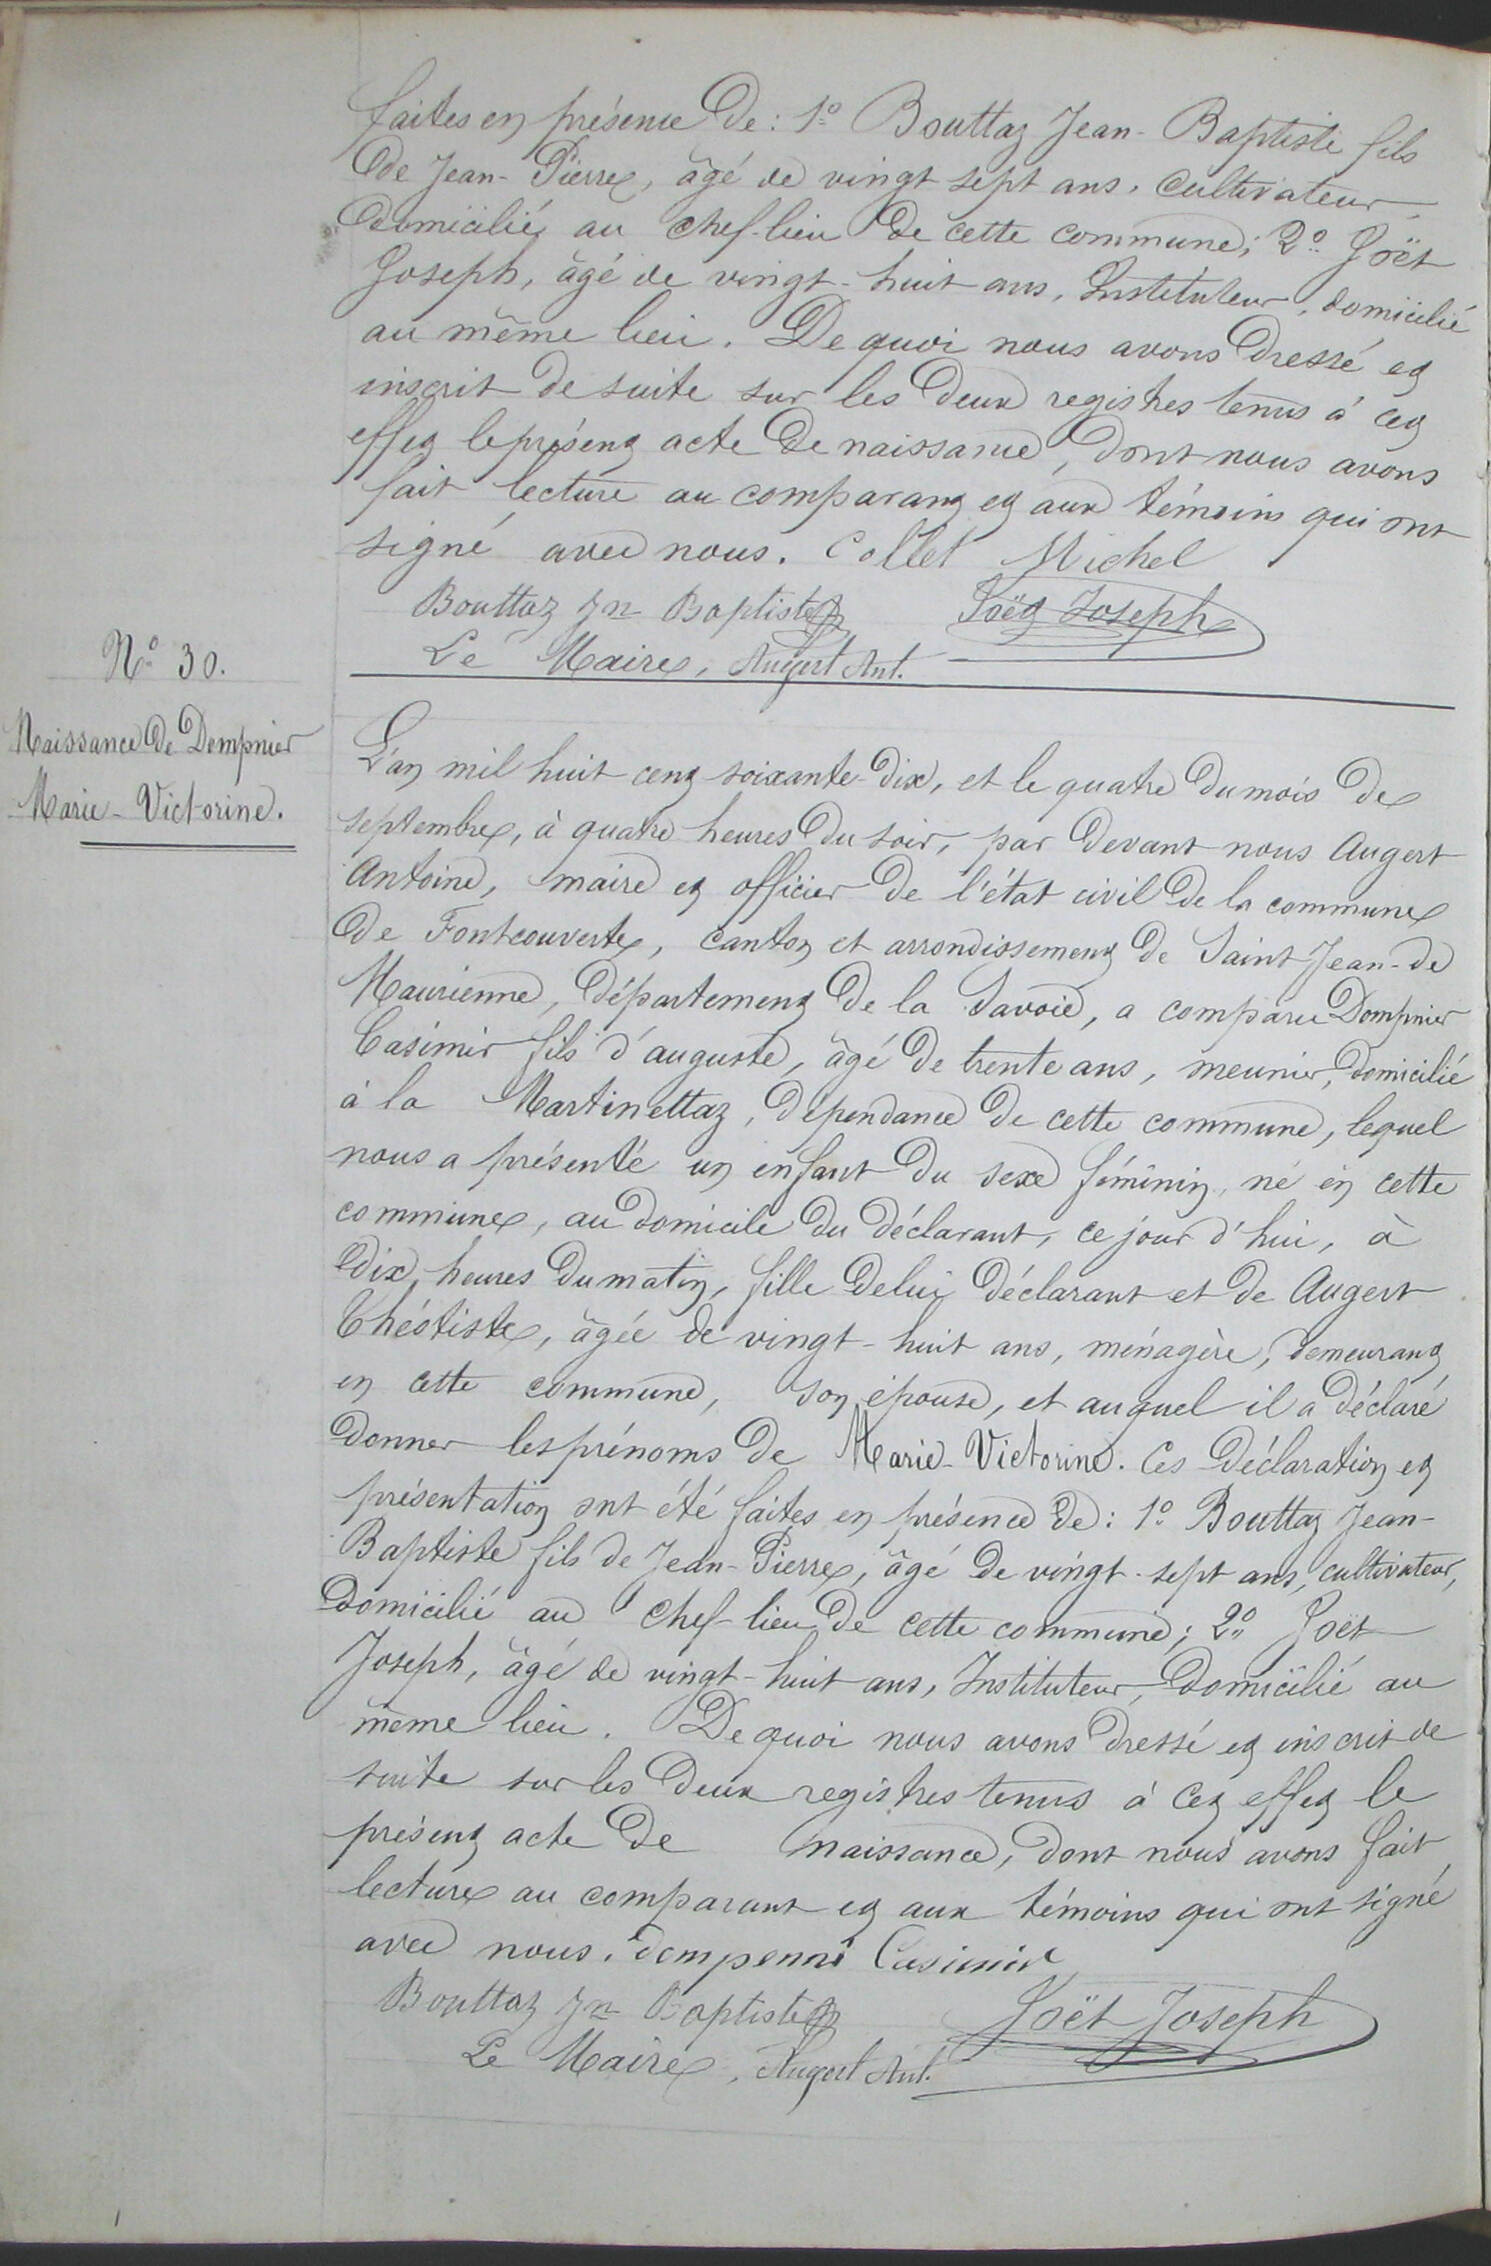 faites en présence de : 1º Bouttaz Jean-Baptiste fils
de Jean-Pierre, âgé de vingt sept ans, cultivateur
domicilié au chef-lieu de cette commune; 2º Joët
Joseph, âgé de vingt-huit ans, Instituteur, domicilié
au même lieu. De quoi nous avons dressé et
inscrit de suite sur les deux registres tenus à cet
effet le présent acte de naissance, dont nous avons
fait lecture au comparant et aux témoins qui ont
signé avec nous. Collet Michel
Bouttaz Jn Baptiste Joët Joseph
Le Maire, Augert Ant.
Nº 30.
Naissance de Dompnier
Marie-Victorine.
L'an mil huit cent soixante-dix, et le quatre du mois de
septembre, à quatre heures du soir, par devant nous Augert
Antoine, maire et officier de l'état civil de la commune
de Fontcouverte, canton et arrondissement de Saint Jean-de
Maurienne, département de la Savoie, a comparu Dompnier
Casimir fils d'auguste, âgé de trente ans, meunier, domicilié
à la Martinettaz, dépendance de cette commune, lequel
nous a présenté un enfant du sexe féminin, né en cette
commune, au domicile du déclarant, ce jour d'hui, à
dix heures du matin, fille de lui déclarant et de Augert
Théotiste, âgée de vingt-huit ans, ménagère, demeurant
en cette commune, son épouse, et auquel il a déclaré
donner les prénoms de Marie-Victorine. Ces déclaration et
présentation ont été faites en présence de : 1º Bouttaz Jean-
Baptiste fils de Jean-Pierre, âgé de vingt-sept ans, cultivateur,
domicilié au chef-lieu de cette commune; 2º Joët
Joseph, âgé de vingt-huit ans, Instituteur, domicilié au
même lieu. De quoi nous avons dressé et inscrit de
suite sur les deux registres tenus à cet effet le
présent acte de naissance, dont nous avons fait
lecture au comparant et aux témoins qui ont signé
avec nous. dompenni Casimir
Bouttaz Jn Baptiste Joët Joseph
Le Maire, Augert Ant.